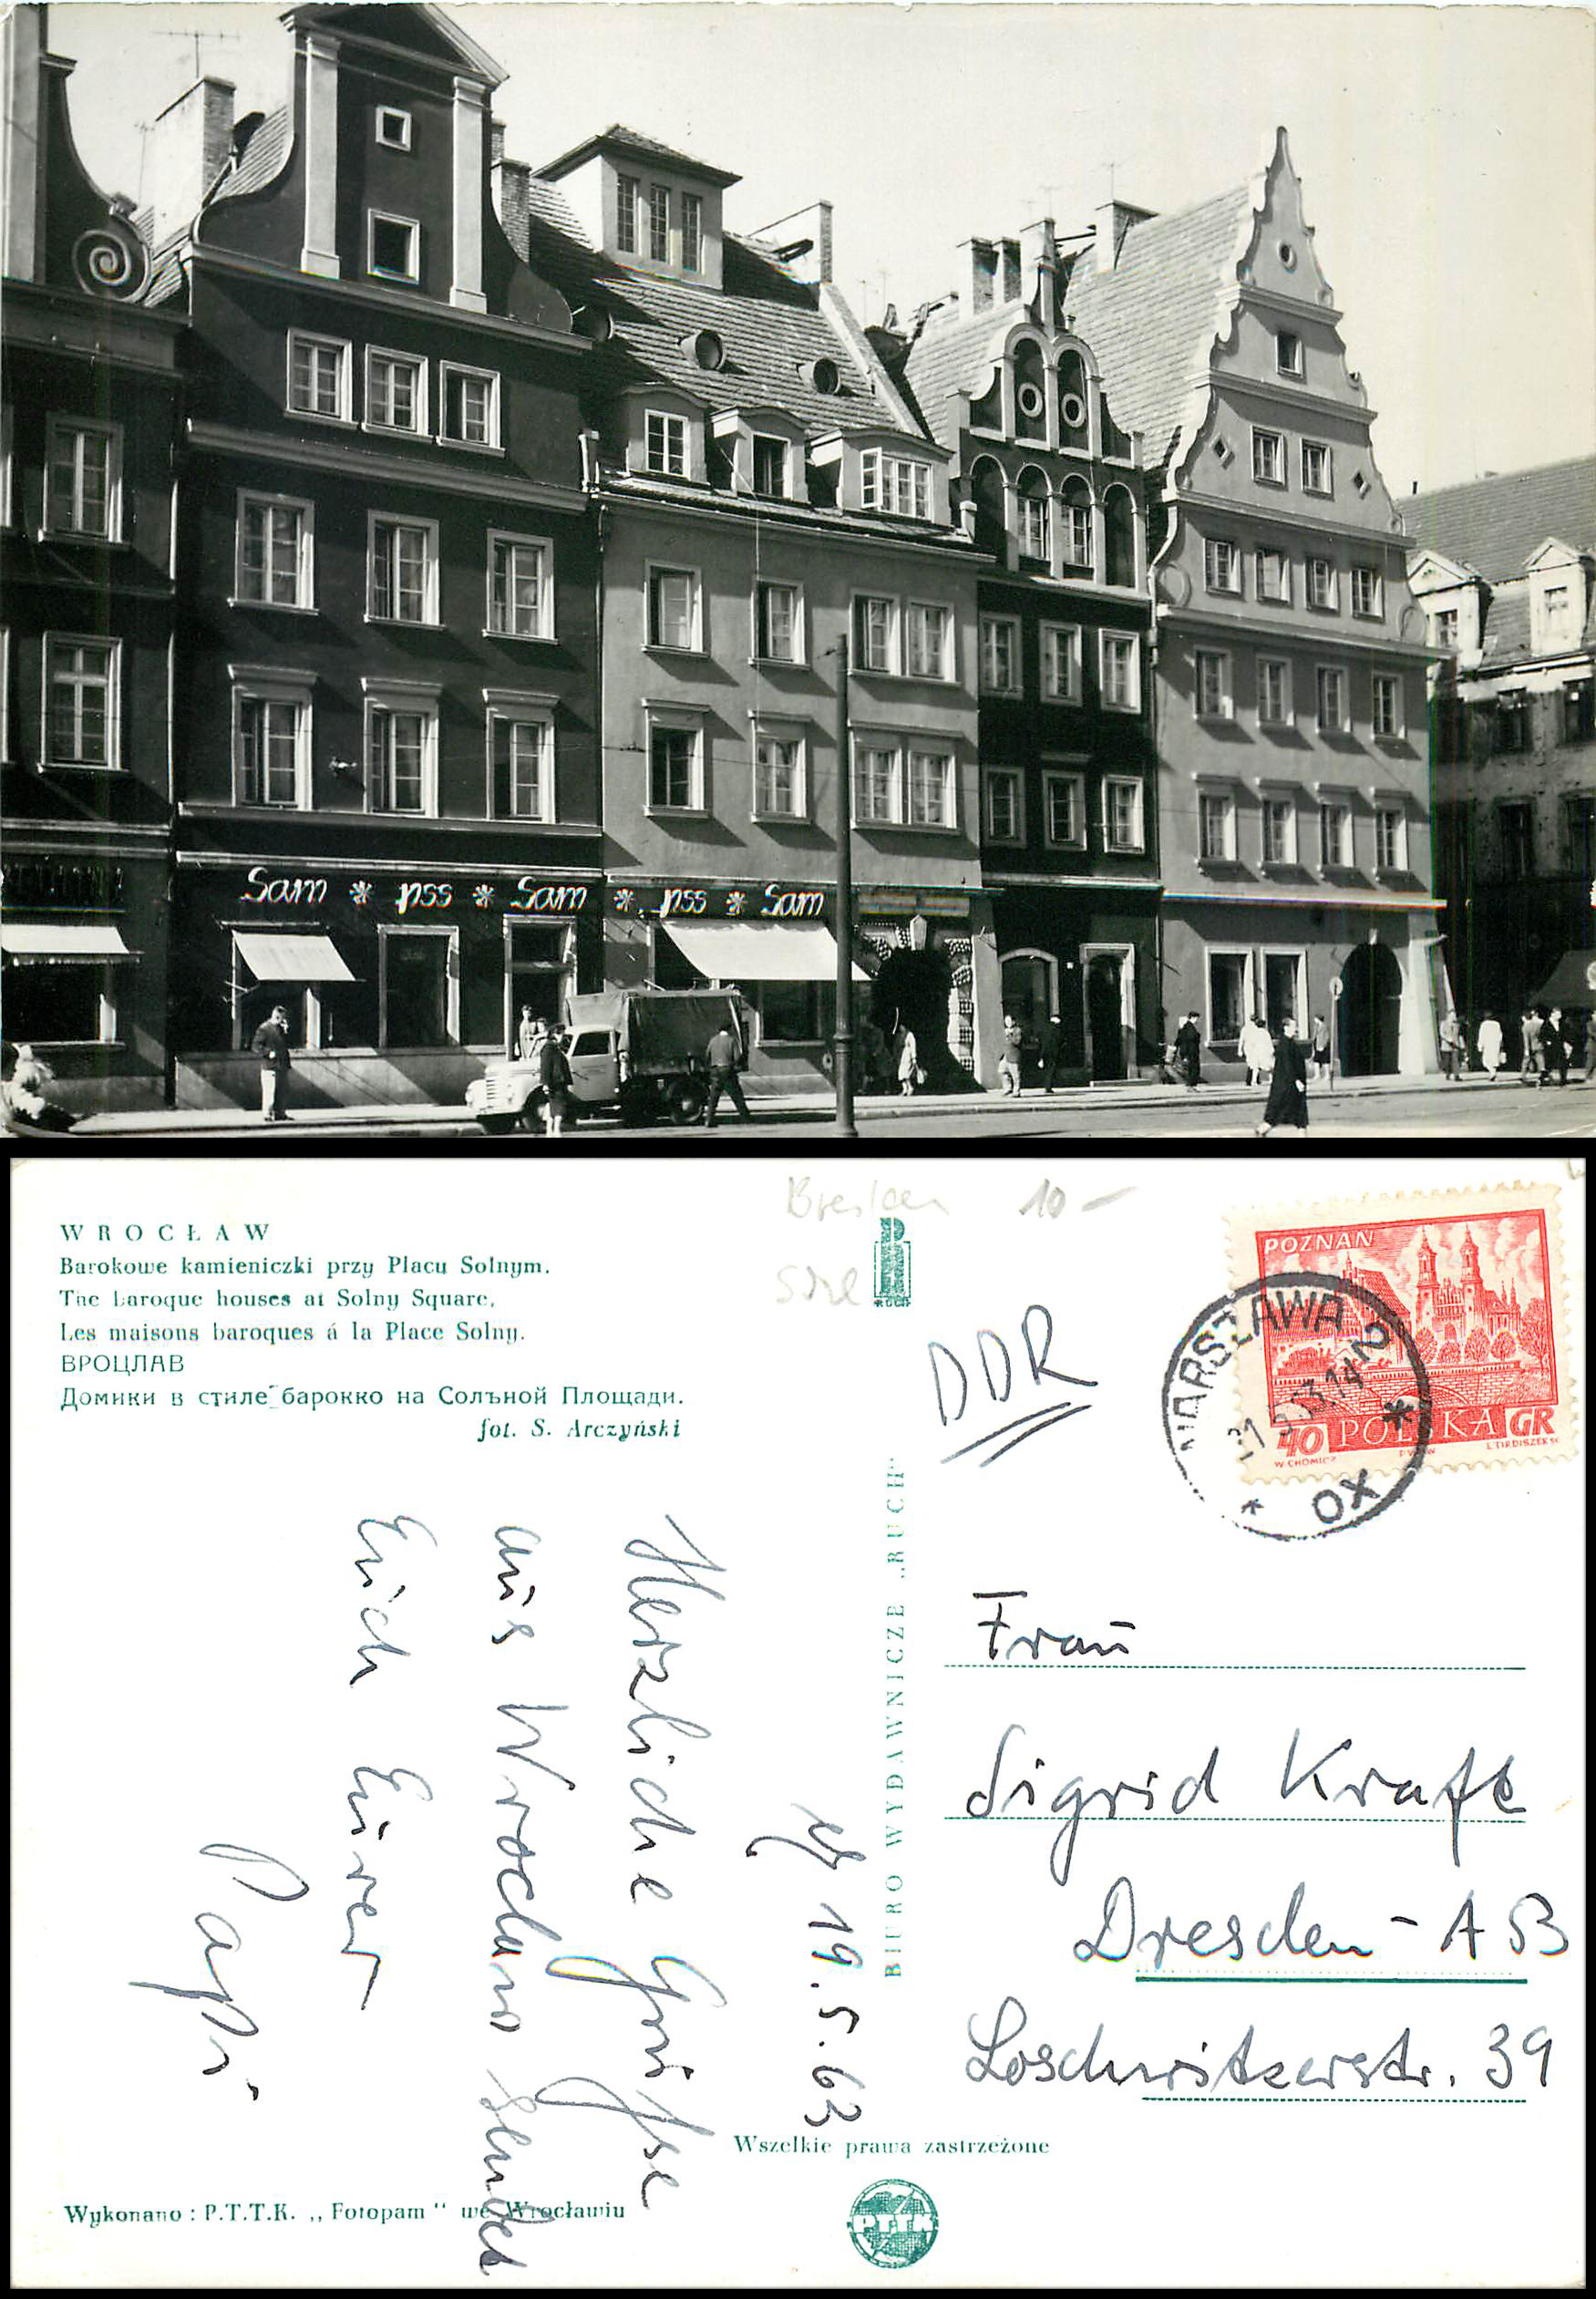 Sam * pss * Sam * pss * Sam
Breslau 10 -
WROCŁAW
Barokowe kamieniczki przy Placu Solnym.
The baroque houses at Solny Square,
Les maisons baroques á la Place Solny.
ВРОЦЛАВ
Домики в стиле барокко на Солъной Площади.
fot. S. Arczyński
RUCH
DDR
POZNAŃ
40 POLSKA GR
W. CHOMICZ
PWPW
WARSZAWA 2
OX
19.5.63
Herzliche Grüsse
aus Wroclaw sendet
Euch Euer
Papi
BIURO WYDAWNICZE „RUCH"
Frau
Sigrid Kraft
Dresden - A 53
Loschwitzerstr. 39
Wszelkie prawa zastrzeżone
Wykonano: P.T.T.K. „Fotopam" we Wrocławiu
PTTK